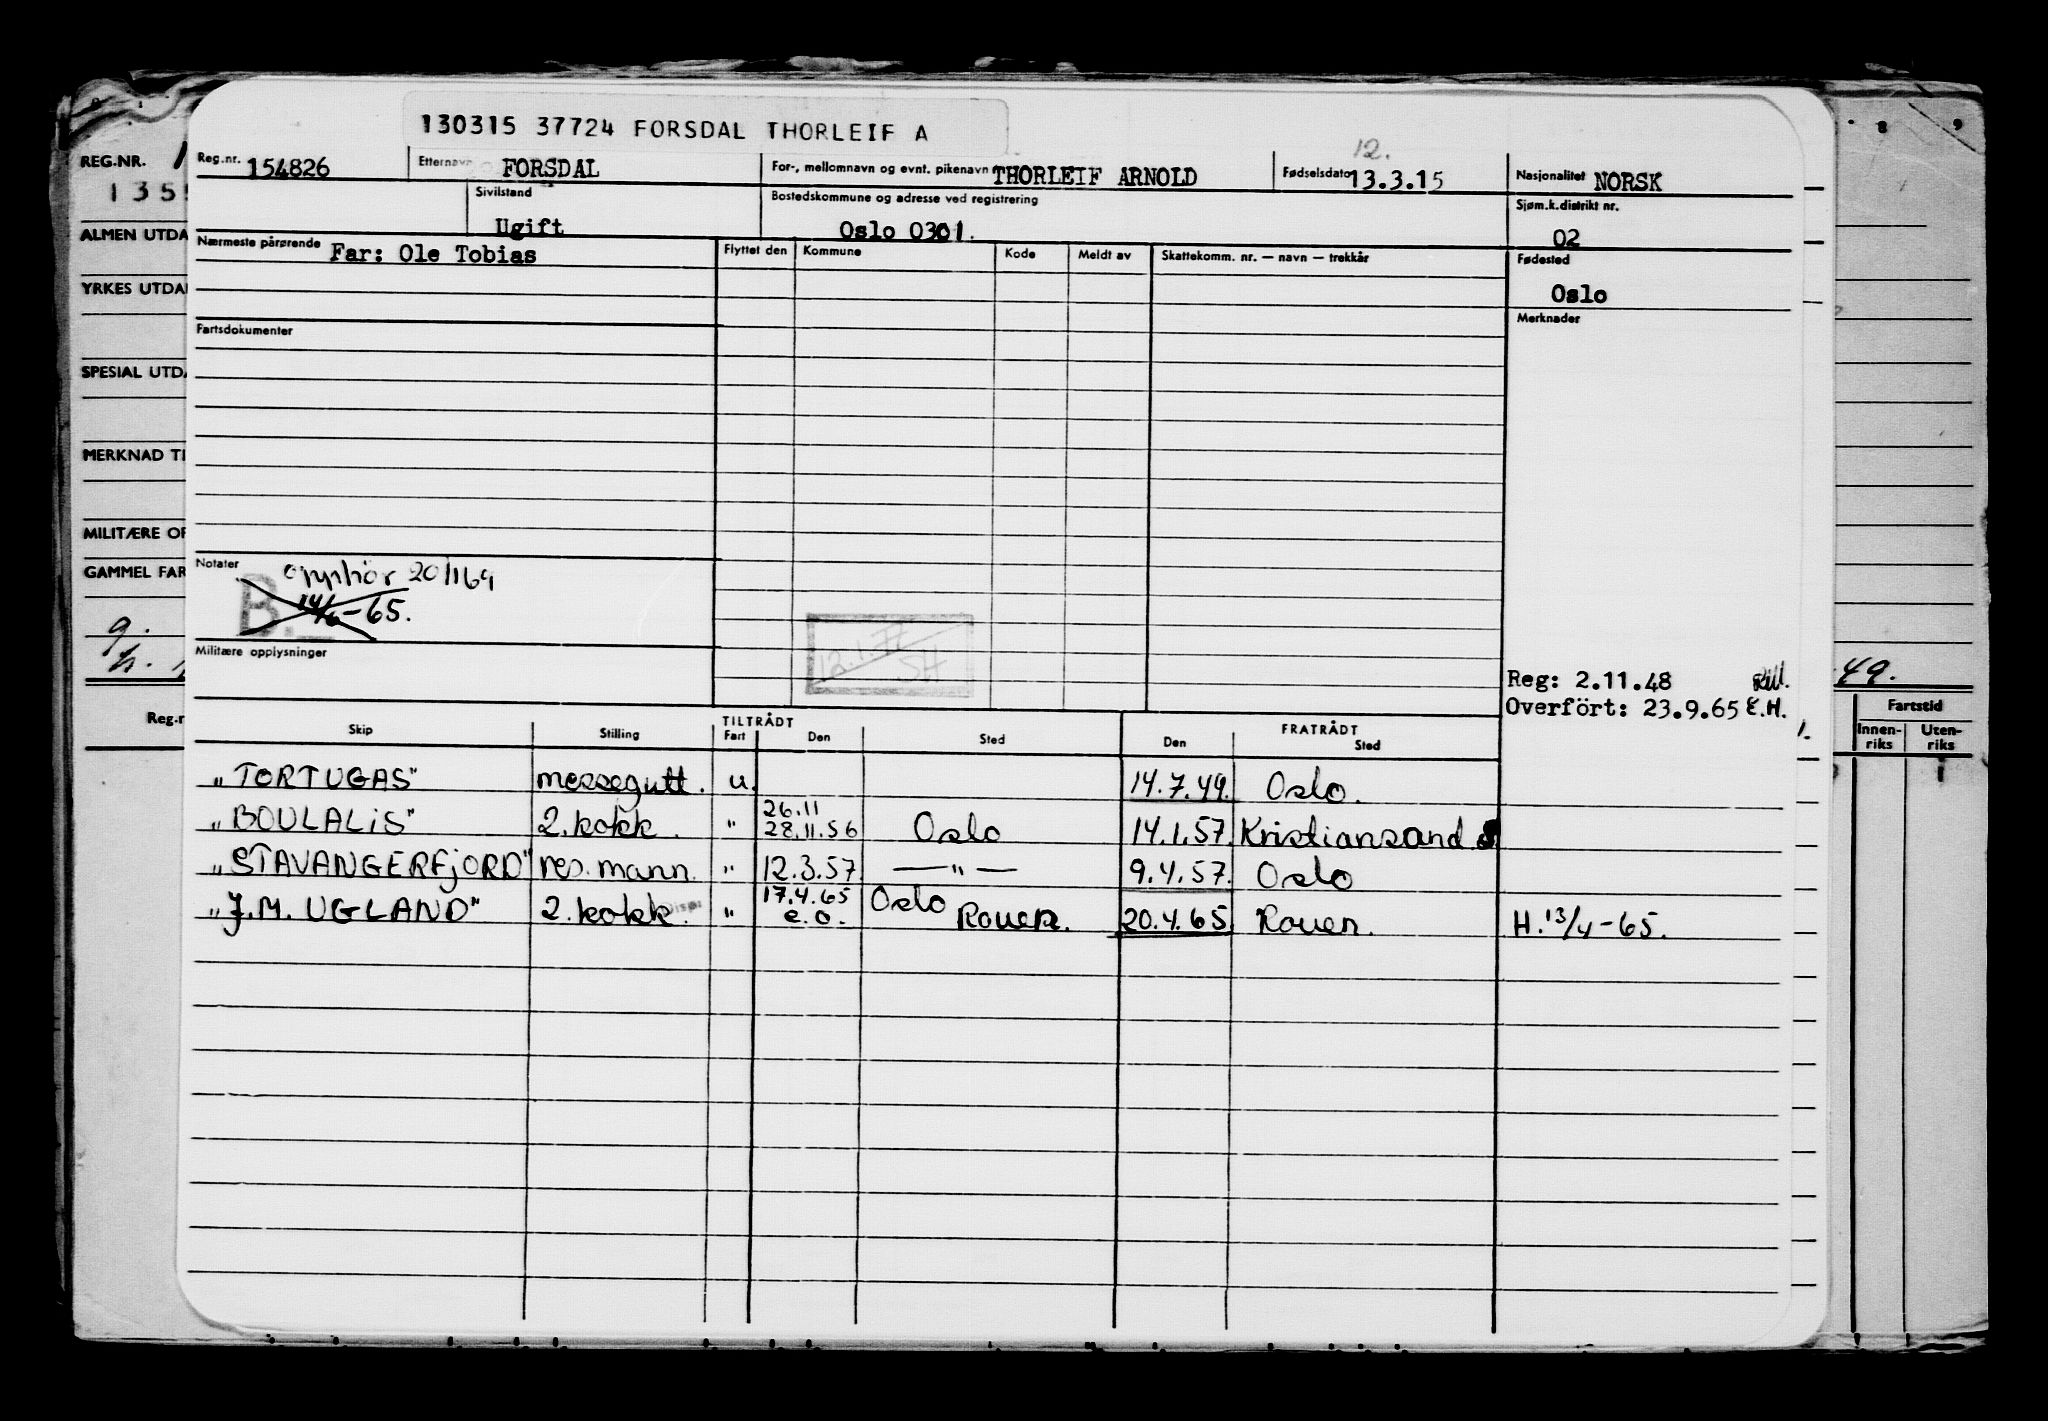 130315 37724 FORSDAL THORLEIF A
Reg.nr. 154826 Etternavn FORSDAL For-, mellomnavn og evnt. pikenavn THORLEIF ARNOLD Fødselsdato 12. 13.3.15 Nasjonalitet NORSK
Sivilstand Ugift Bostedskommune og adresse ved registrering Oslo 0301. Sjøm.k.distrikt nr. 02
Nærmeste pårørende Far: Ole Tobias Flyttet den Kommune Kode Meldt av Skattekomm. nr. — navn — trekkår Fødested Oslo
Fartsdokumenter Merknader
Notater opphör 20/1 69
B. 14/6-65.
12.1.77
SH
Militære opplysninger
Reg: 2.11.48
Overfört: 23.9.65 E.H.
Skip Stilling TILTRÅDT Fart Den Sted FRATRÅDT Den Sted
"TORTUGAS" messegutt. u. 14.7.49. Oslo.
"BOULALIS" 2.kokk. " 26.11 28.11.56 Oslo 14.1.57. Kristiansand S
"STAVANGERFJORD" res.mann. " 12.3.57 —"— 9.4.57. Oslo
"J.M. UGLAND" 2.kokk. " 17.4.65 e.o. Oslo Rouen. 20.4.65. Rouen. H.13/4-65.
REG.NR. 1
135
ALMEN UTDA
YRKES UTDA
SPESIAL UTDA
MERKNAD TI
MILITÆRE OP
GAMMEL FAR
Reg.n
8 9
49.
Fartstid
Innen-riks Uten-riks